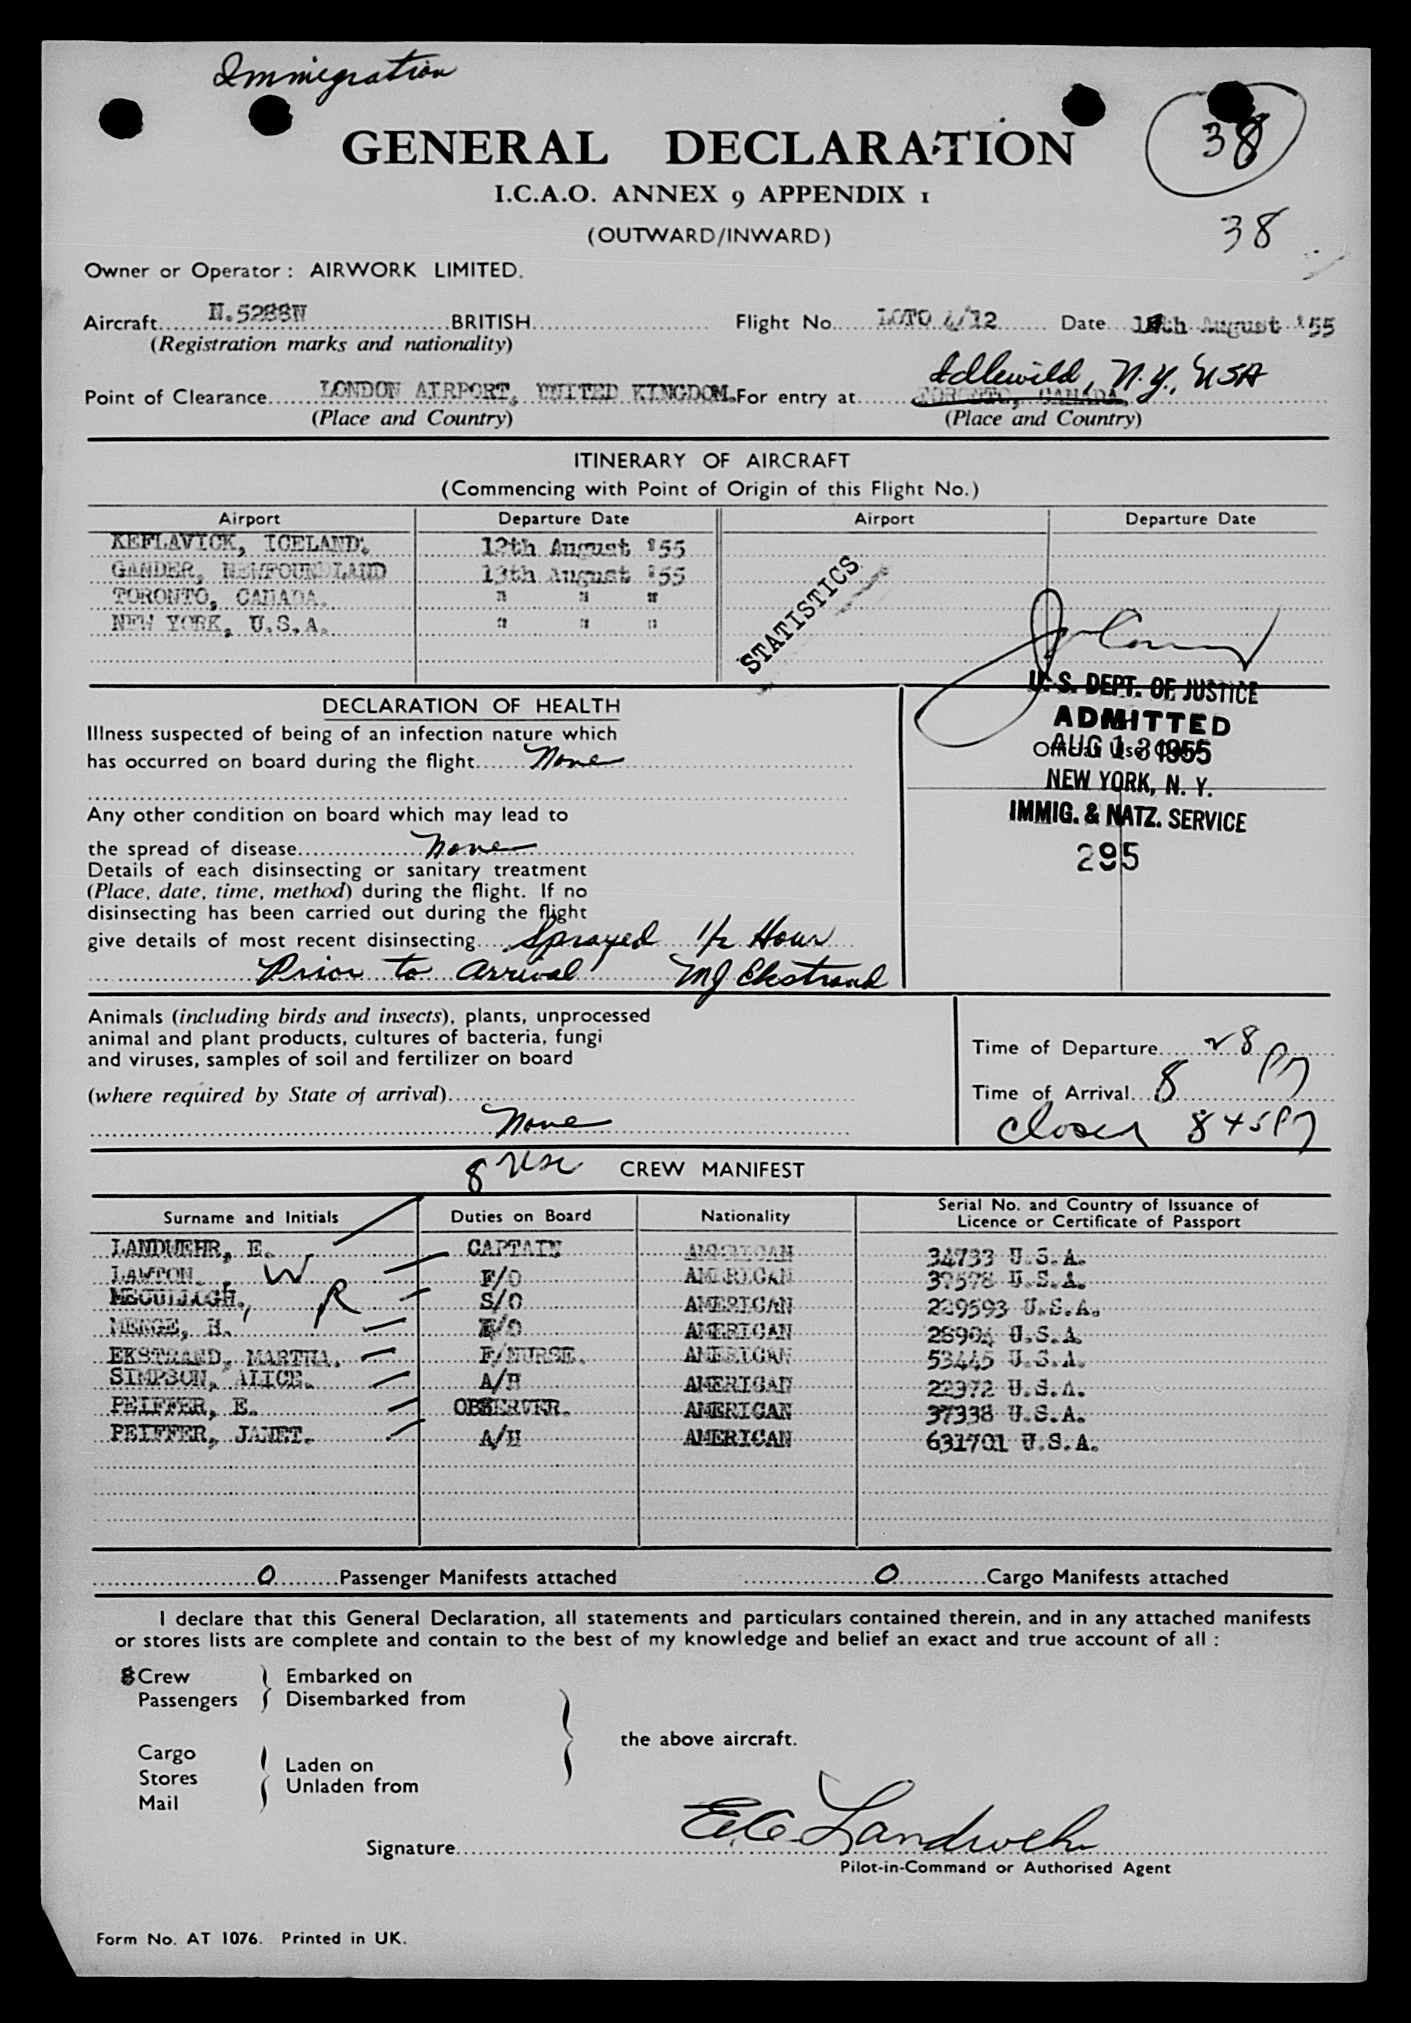 Immigration
GENERAL DECLARATION
38
I.C.A.O. ANNEX 9 APPENDIX 1
(OUTWARD/INWARD)
38
Owner or Operator : AIRWORK LIMITED.
Aircraft N.5288W BRITISH Flight No. LOTO 4/12 Date August '55
(Registration marks and nationality)
Idlewild, N.Y., USA
Point of Clearance LONDON AIRPORT, UNITED KINGDOM. For entry at TORONTO, CANADA
(Place and Country) (Place and Country)
ITINERARY OF AIRCRAFT
(Commencing with Point of Origin of this Flight No.)
Airport Departure Date Airport Departure Date
KEFLAVICK, ICELAND. 12th August '55
GANDER, NEWFOUNDLAND 13th August '55
TORONTO, CANADA. " " "
NEW YORK, U.S.A. " " "
STATISTICS
U. S. DEPT. OF JUSTICE
ADMITTED
AUG 13 1955
Official Use Only
NEW YORK, N. Y.
IMMIG. & NATZ. SERVICE
295
DECLARATION OF HEALTH
Illness suspected of being of an infection nature which
has occurred on board during the flight None
Any other condition on board which may lead to
the spread of disease None
Details of each disinsecting or sanitary treatment
(Place, date, time, method) during the flight. If no
disinsecting has been carried out during the flight
give details of most recent disinsecting Sprayed 1/2 Hour
Prior to Arrival MJ Ekstrand
Animals (including birds and insects), plants, unprocessed
animal and plant products, cultures of bacteria, fungi
and viruses, samples of soil and fertilizer on board
(where required by State of arrival)
None
Time of Departure 28
Time of Arrival 8 PM
Closed 845PM
8 USC CREW MANIFEST
Surname and Initials Duties on Board Nationality Serial No. and Country of Issuance of
Licence or Certificate of Passport
LANDWEHR, E. CAPTAIN AMERICAN 34733 U.S.A.
LAWTON, W F/O AMERICAN 39598 U.S.A.
MCCULLOCH, R S/O AMERICAN 229593 U.S.A.
MENGE, H. E/O AMERICAN 28904 U.S.A.
EKSTRAND, MARTHA. F/NURSE. AMERICAN 53445 U.S.A.
SIMPSON, ALICE. A/H AMERICAN 22372 U.S.A.
PEIFFER, E. OBSERVER. AMERICAN 37338 U.S.A.
PEIFFER, JANET. A/H AMERICAN 631701 U.S.A.
0 Passenger Manifests attached 0 Cargo Manifests attached
I declare that this General Declaration, all statements and particulars contained therein, and in any attached manifests
or stores lists are complete and contain to the best of my knowledge and belief an exact and true account of all :
8 Crew
Passengers
Embarked on
Disembarked from
Cargo
Stores
Mail
Laden on
Unladen from
the above aircraft.
Signature E.C. Landwehr
Pilot-in-Command or Authorised Agent
Form No. AT 1076. Printed in UK.